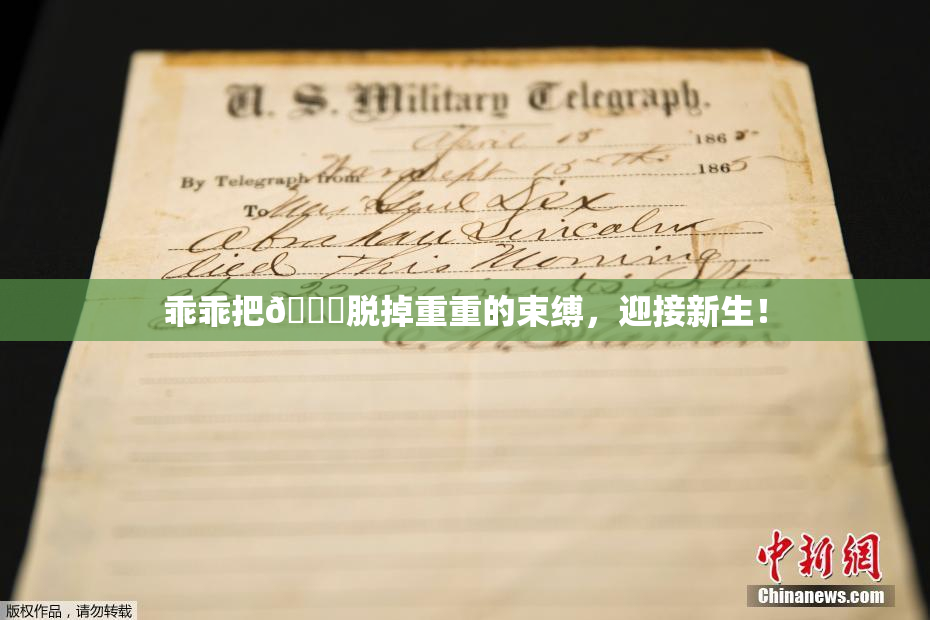 U. S. Military Telegraph.
April 15 1865
By Telegraph from War Dept 15th 1865
To Maj Genl Dix
Abraham Lincoln
died This Morning
at 22 minutes after
乖乖把ð脱掉重重的束缚，迎接新生！
E. M. Stanton
中新網
Chinanews.com
版权作品，请勿转载